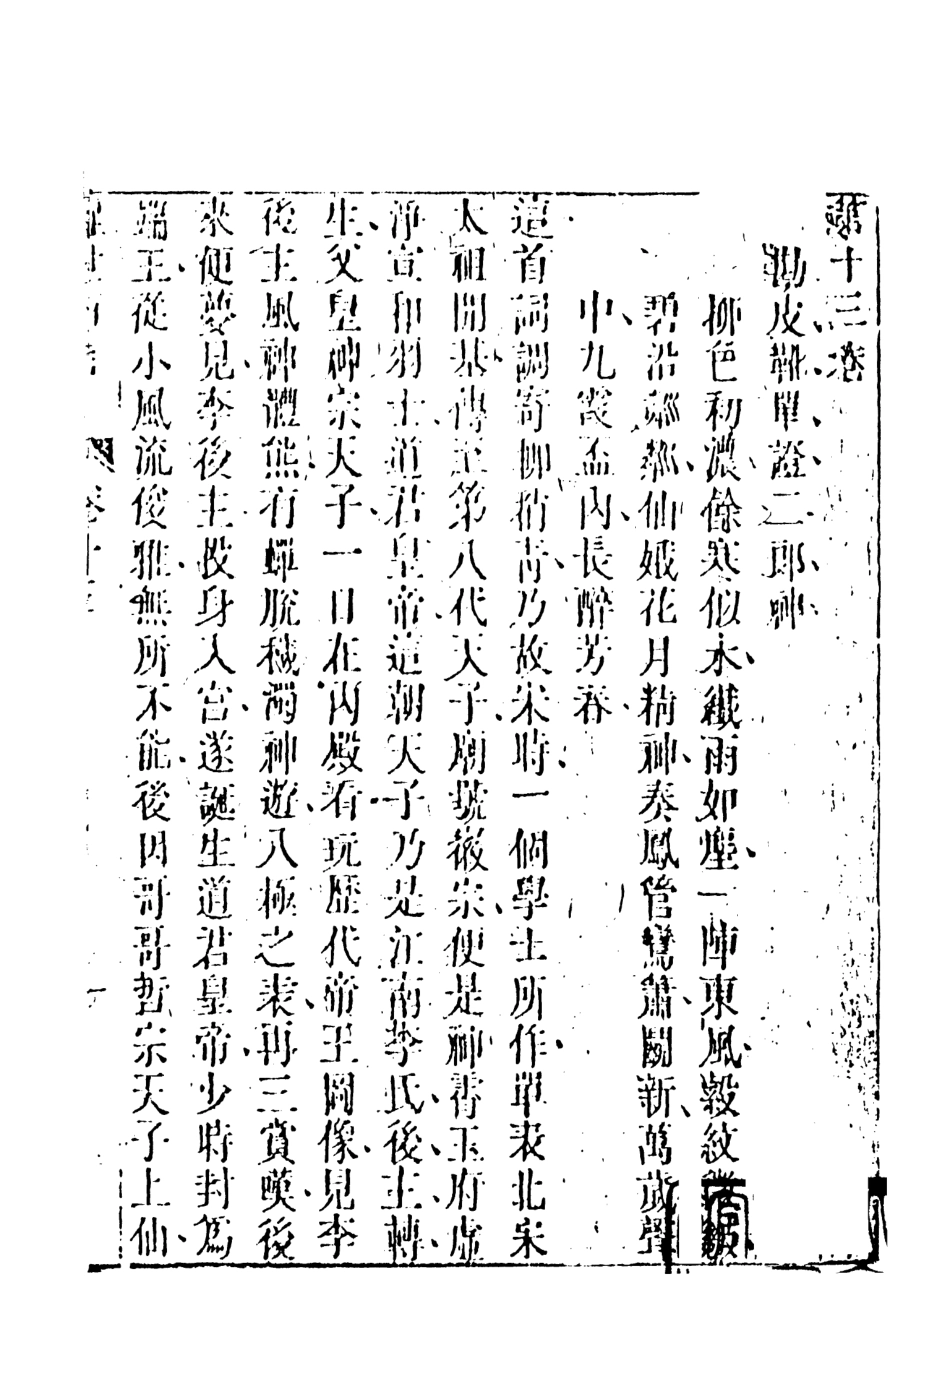 第十三卷
勘皮靴單證二郎神
柳色初濃餘寒似水纖雨如塵一陣東風縠紋
碧沿 仙娥花月精神奏鳳管鸞簫鬭新萬歲聲
中九霞盃內長醉芳春
這首詞調寄柳梢青乃故宋時一個學士所作單表北宋
太祖開基傳至第八代天子廟號徽宗便是神霄玉府虛
淨宣和羽士道君皇帝這朝天子乃是江南李氏後主轉
生父皇神宗天子一日在內殿看玩歷代帝王圖像見李
後主風神體態有蟬脫穢濁神遊八極之表再三賞嘆後
來便夢見李後主投身入宮遂誕生道君皇帝少時封爲
端王從小風流俊雅無所不能後因哥哥哲宗天子上仙